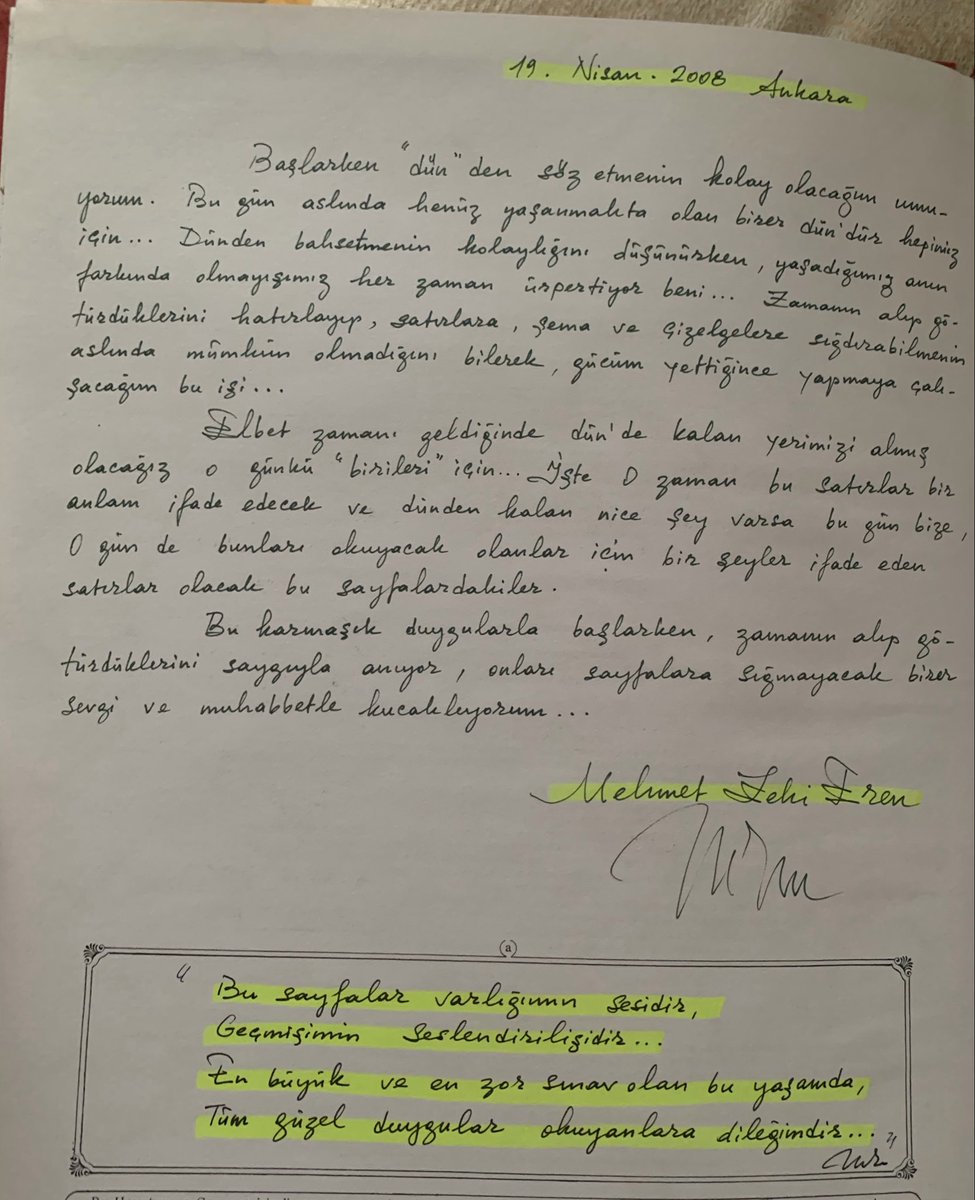 19. Nisan. 2008 Ankara
Başlarken "dün"den söz etmenin kolay olacağını umu-
yorum. Bu gün aslında henüz yaşanmakta olan birer dün'dür hepimiz
için... Dünden bahsetmenin kolaylığını düşünürken, yaşadığımız anın
farkında olmayışımız her zaman ürpertiyor beni... Zamanın alıp gö-
türdüklerini hatırlayıp, satırlara, şema ve çizelgelere sığdırabilmenin
aslında mümkün olmadığını bilerek, gücüm yettiğince yapmaya çalı-
şacağım bu işi...
Elbet zamanı geldiğinde dün'de kalan yerimizi almış
olacağız o günkü "birileri" için... İşte O zaman bu satırlar bir
anlam ifade edecek ve dünden kalan nice şey varsa bu gün bize,
O gün de bunları okuyacak olanlar için bir şeyler ifade eden
satırlar olacak bu sayfalardakiler.
Bu karmaşık duygularla başlarken, zamanın alıp gö-
türdüklerini saygıyla anıyor, onları sayfalara sığmayacak birer
sevgi ve muhabbetle kucaklıyorum...
Mehmet Zeki Eren
(a)
"Bu sayfalar varlığımın sesidir,
Geçmişimin seslendirilişidir...
En büyük ve en zor sınav olan bu yaşamda,
Tüm güzel duygular okuyanlara dileğimdir..."